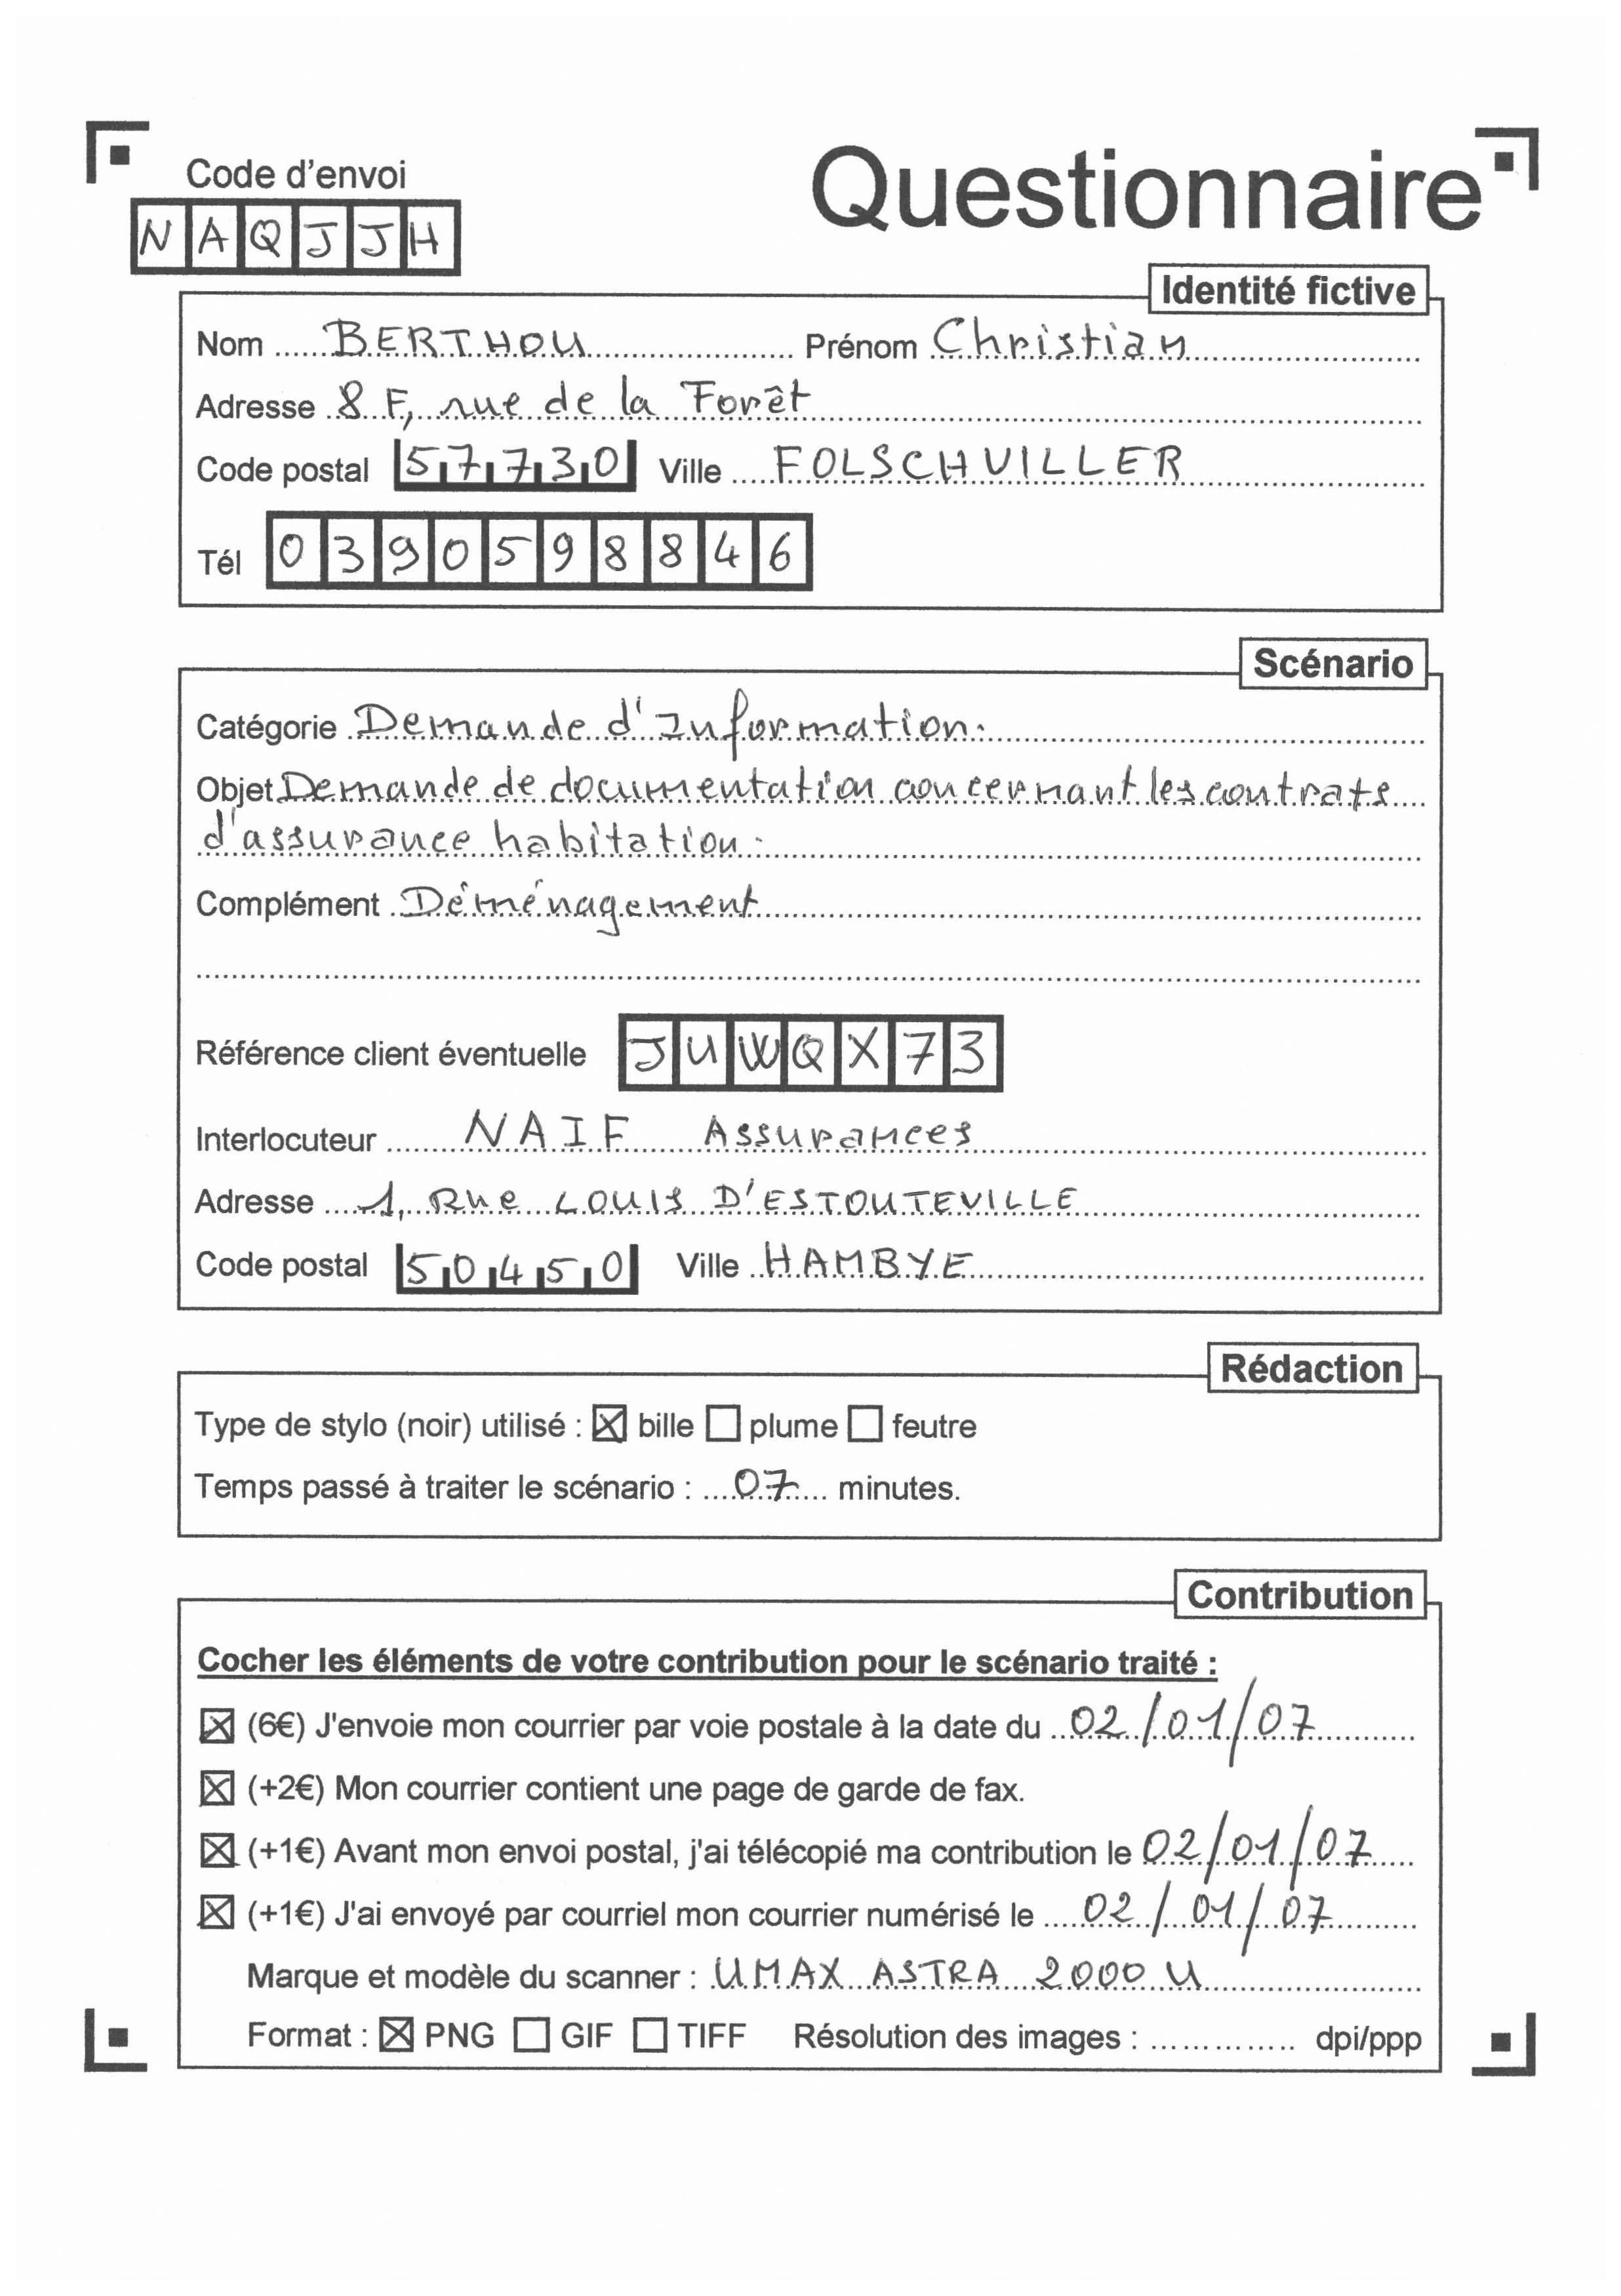 Code d'envoi
Questionnaire
NAQJJH
Identité fictive
Nom ...... BERTHOU ...... Prénom Christian ......
Adresse . 8 F, rue de la Forêt ......
Code postal 57730 Ville ..... FOLSCHVILLER ......
Tél 0390598846
Scénario
Catégorie . Demande d'Information. ......
Objet Demande de documentation concernant les contrats ....
d'assurance habitation. ......
Complément . Déménagement ......
Référence client éventuelle JUWQX73
Interlocuteur ...... NAIF Assurances ......
Adresse .... 1, Rue LOUIS D'ESTOUTEVILLE ......
Code postal 50450 Ville .. HAMBYE ......
Rédaction
Type de stylo (noir) utilisé : ☒ bille ☐ plume ☐ feutre
Temps passé à traiter le scénario : ... 07 ... minutes.
Contribution
Cocher les éléments de votre contribution pour le scénario traité :
☒ (6€) J'envoie mon courrier par voie postale à la date du .. 02/01/07 ......
☒ (+2€) Mon courrier contient une page de garde de fax.
☒ (+1€) Avant mon envoi postal, j'ai télécopié ma contribution le 02/01/07 ....
☒ (+1€) J'ai envoyé par courriel mon courrier numérisé le .... 02/01/07 ......
Marque et modèle du scanner : . UMAX ASTRA 2000 U ......
Format : ☒ PNG ☐ GIF ☐ TIFF Résolution des images : .............. dpi/ppp